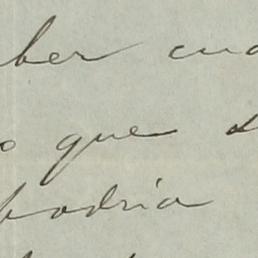 ber cua
o que d
podria